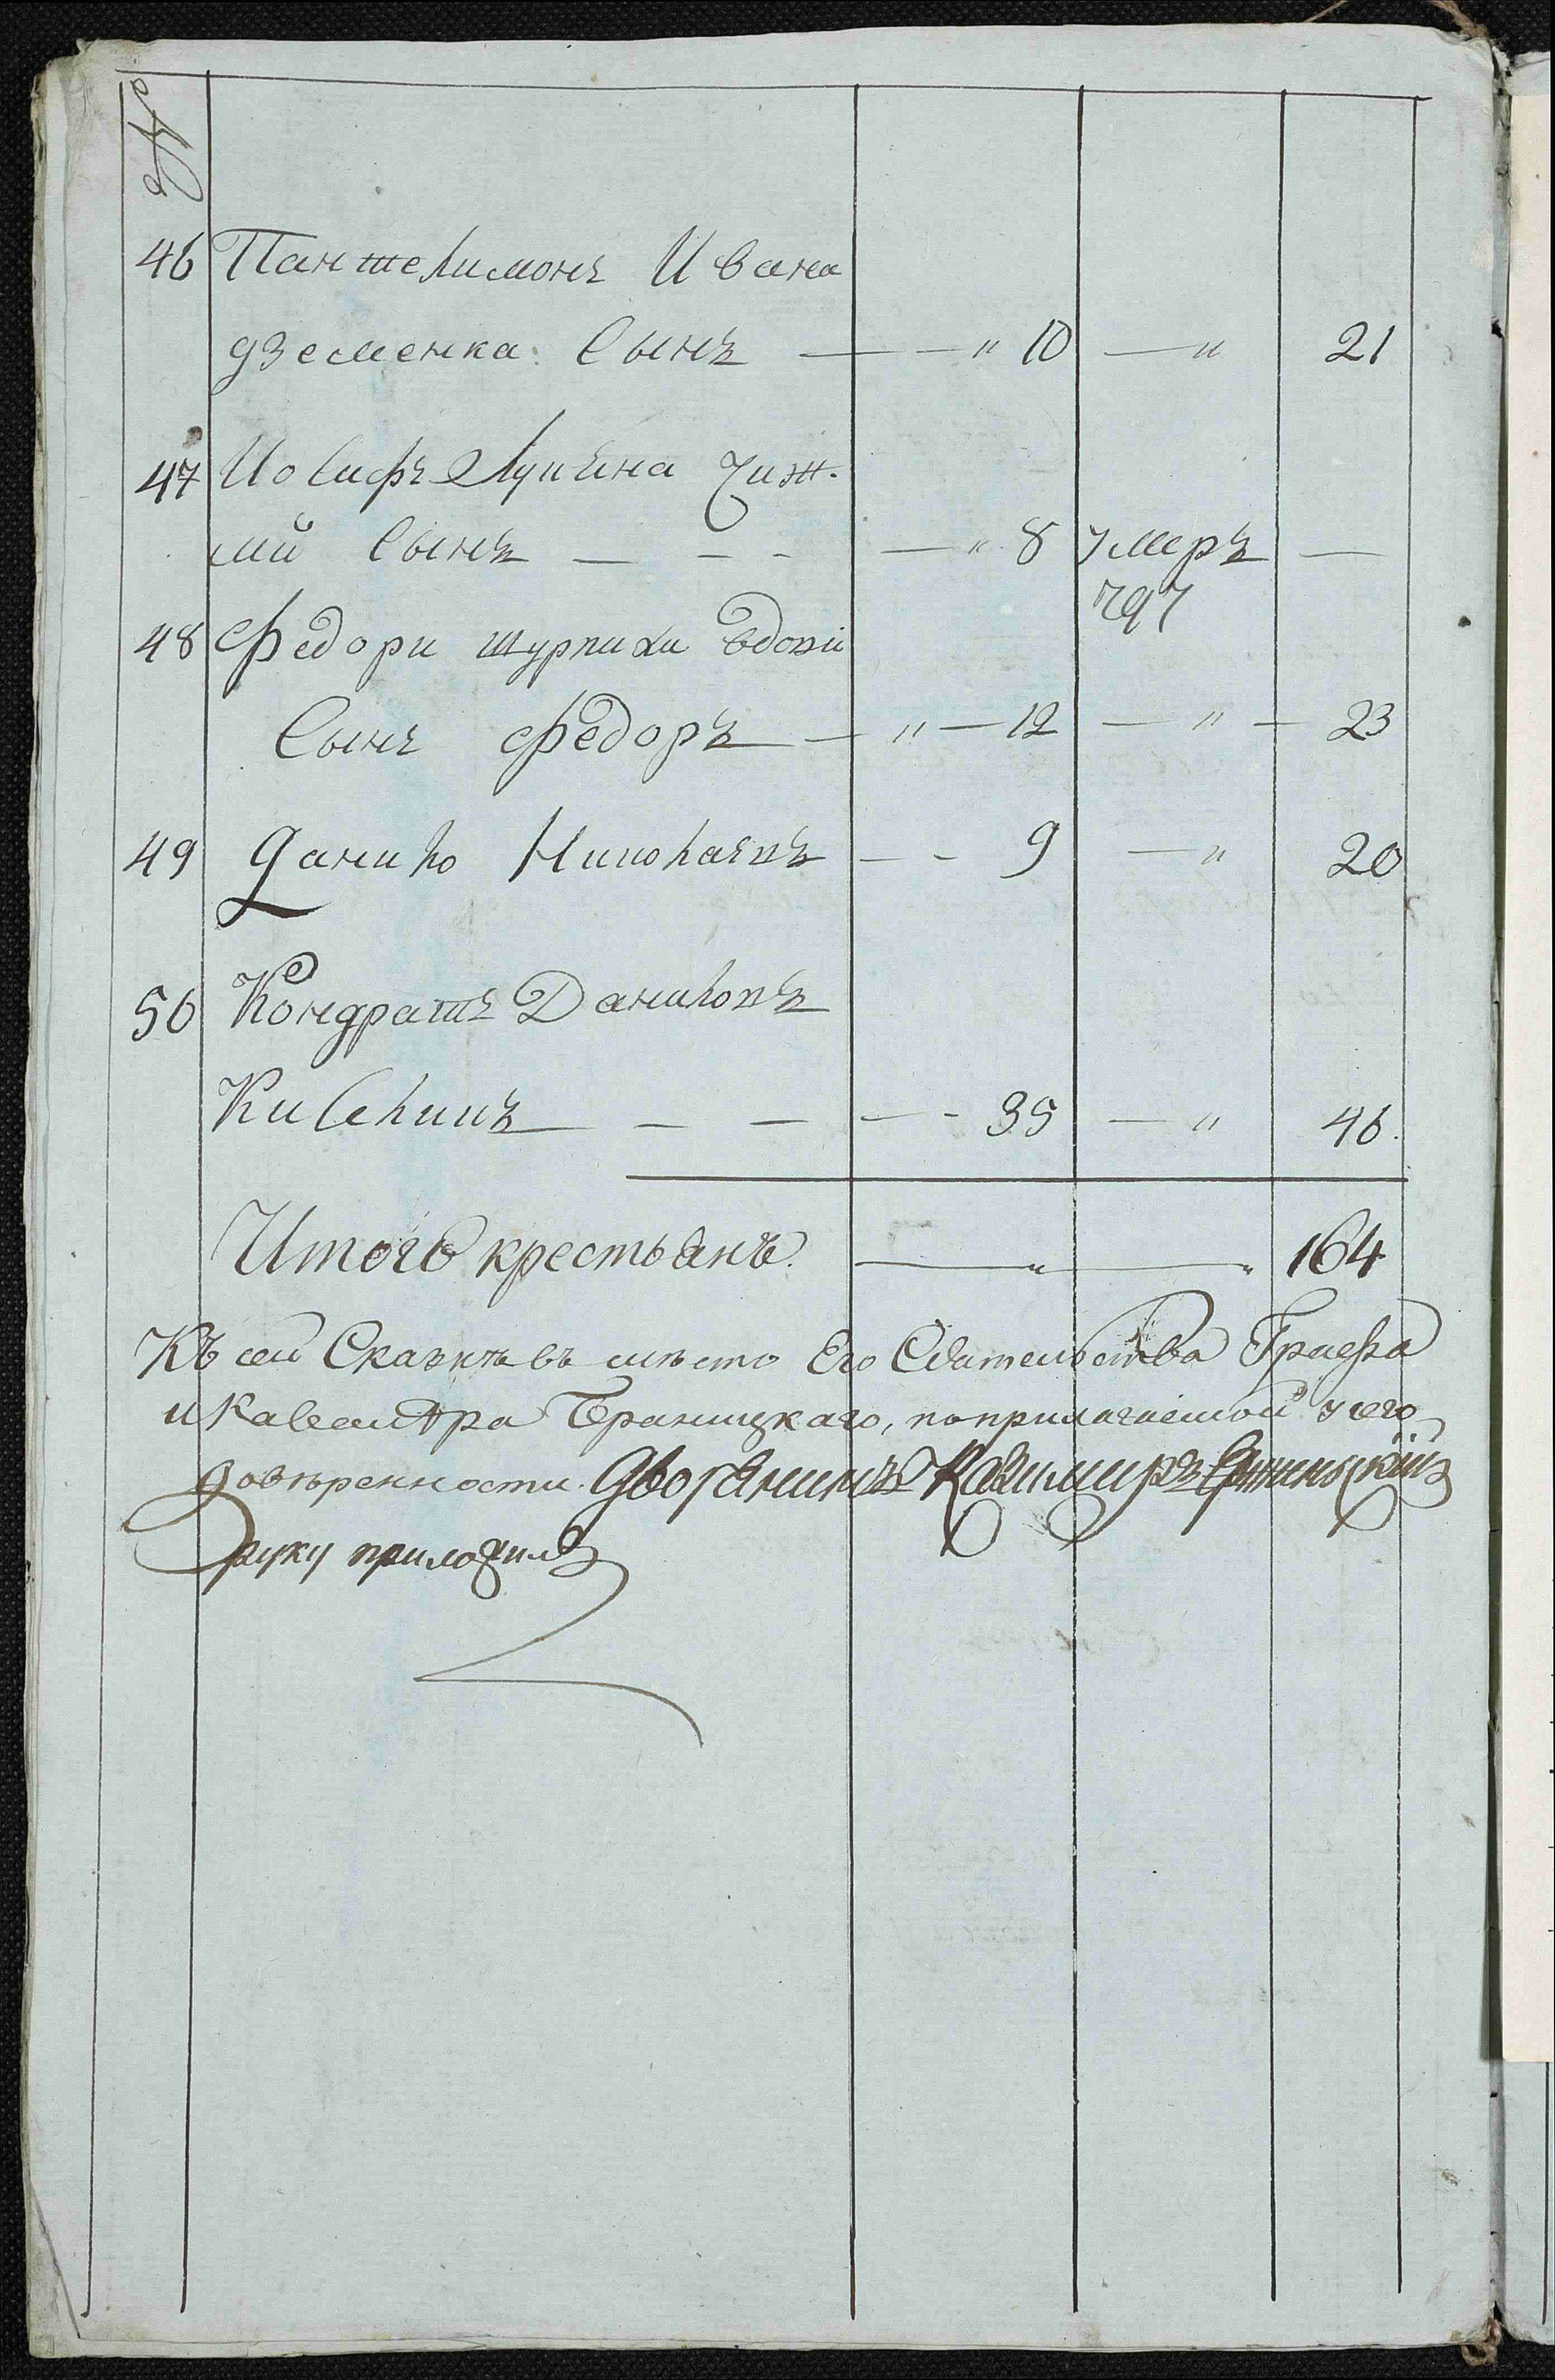 №
46 Пантелимонъ Ивана
дземенка Сынъ — — " 10 — " 21
47 Иосифъ Лукяна Чиж-
мы Сынъ — - - — " 8 умеръ —
797
48 Федори шурпихи вдови
Сынъ Федоръ — " — 12 — " — 23
49 Данило Николаевъ — - 9 — " 20
50 Кондратъ Даниловъ
Киселицъ — — — — - 35 — " 46.
Итого крестьянъ. — " — " 164
Къ сей Сказкѣ въ мѣсто Его Сіятельства Графа
и Кавалера Браницкаго, поприлагаемой у сего
довѣренности. дворянинъ Казимиръ
руку приложилъ